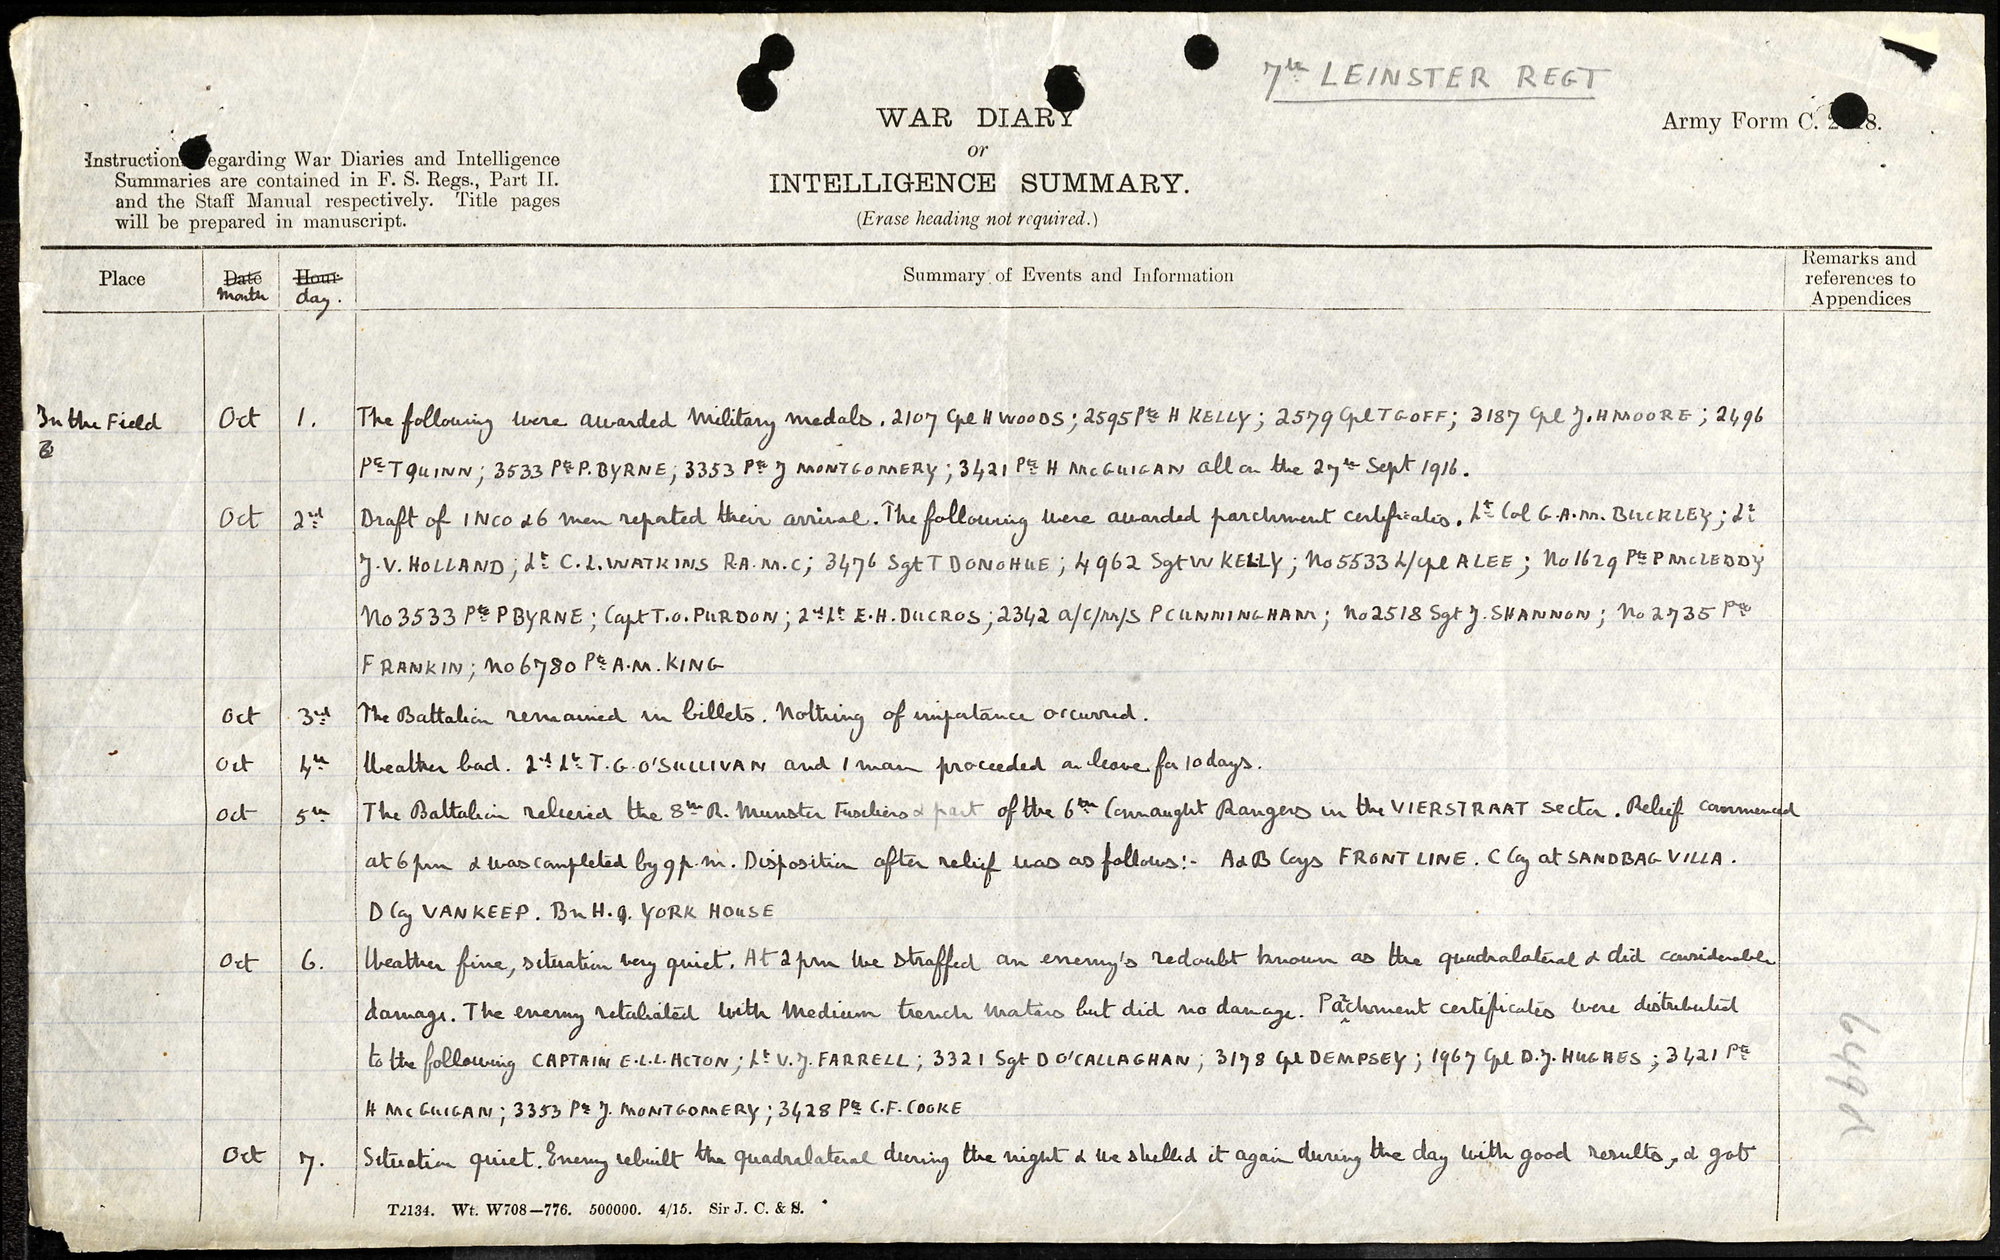 7th LEINSTER REGT
WAR DIARY
or
INTELLIGENCE SUMMARY.
(Erase heading not required.)
Army Form C. 2118.
Instructions regarding War Diaries and Intelligence
Summaries are contained in F. S. Regs., Part II.
and the Staff Manual respectively. Title pages
will be prepared in manuscript.
Place
Date
Month
Hour
day.
Summary of Events and Information
Remarks and
references to
Appendices
In the Field Oct 1. The following were awarded Military medals. 2107 Cpl H WOODS; 2595 Pte H KELLY; 2579 Cpl T GOFF; 3187 Cpl J. H MOORE; 2496
Pte T QUINN; 3533 Pte P. BYRNE; 3353 Pte J MONTGOMERY; 3421 Pte H McGUIGAN all on the 27th Sept 1916.
Oct 2nd Draft of 1 NCO & 6 men reported their arrival. The following were awarded parchment certificates. Lt Col G.A.M. BUCKLEY; Lt
J.V. HOLLAND; Lt C.L. WATKINS R.A.M.C; 3476 Sgt T DONOHUE; 4962 Sgt W KELLY; No 5533 L/Cpl A LEE; No 1629 Pte P McLEDDY
No 3533 Pte P BYRNE; Capt T.O. PURDON; 2nd Lt E.H. DUCROS; 2342 a/C/M/S P CUNNINGHAM; No 2518 Sgt J. SHANNON; No 2735 Pte
F RANKIN; No 6780 Pte A.M. KING
Oct 3rd The Battalion remained in billets. Nothing of importance occurred.
Oct 4th Weather bad. 2nd Lt T.G. O'SULLIVAN and 1 man proceeded on leave for 10 days.
Oct 5th The Battalion relieved the 8th R. Munster Fusiliers & part of the 6th Connaught Rangers in the VIERSTRAAT sector. Relief commenced
at 6 pm & was completed by 9 p.m. Disposition after relief was as follows:- A & B Coys FRONT LINE. C Coy at SANDBAG VILLA.
D Coy VANKEEP. Bn H.Q. YORK HOUSE
Oct 6. Weather fine, situation very quiet. At 2 pm we straffed an enemy's redoubt known as the quadralateral & did considerable
damage. The enemy retaliated with Medium trench Motars but did no damage. Parchment certificates were distributed
to the following CAPTAIN E.L.L. ACTON; Lt V.J. FARRELL; 3321 Sgt D O'CALLAGHAN; 3178 Cpl DEMPSEY; 1967 Cpl D.J. HUGHES; 3421 Pte
H McGUIGAN; 3353 Pte J. MONTGOMERY; 3428 Pte C.F. COOKE
Oct 7. Situation quiet. Enemy rebuilt the quadralateral during the night & we shelled it again during the day with good results, & got
T2134. Wt. W708—776. 500000. 4/15. Sir J. C. & S.